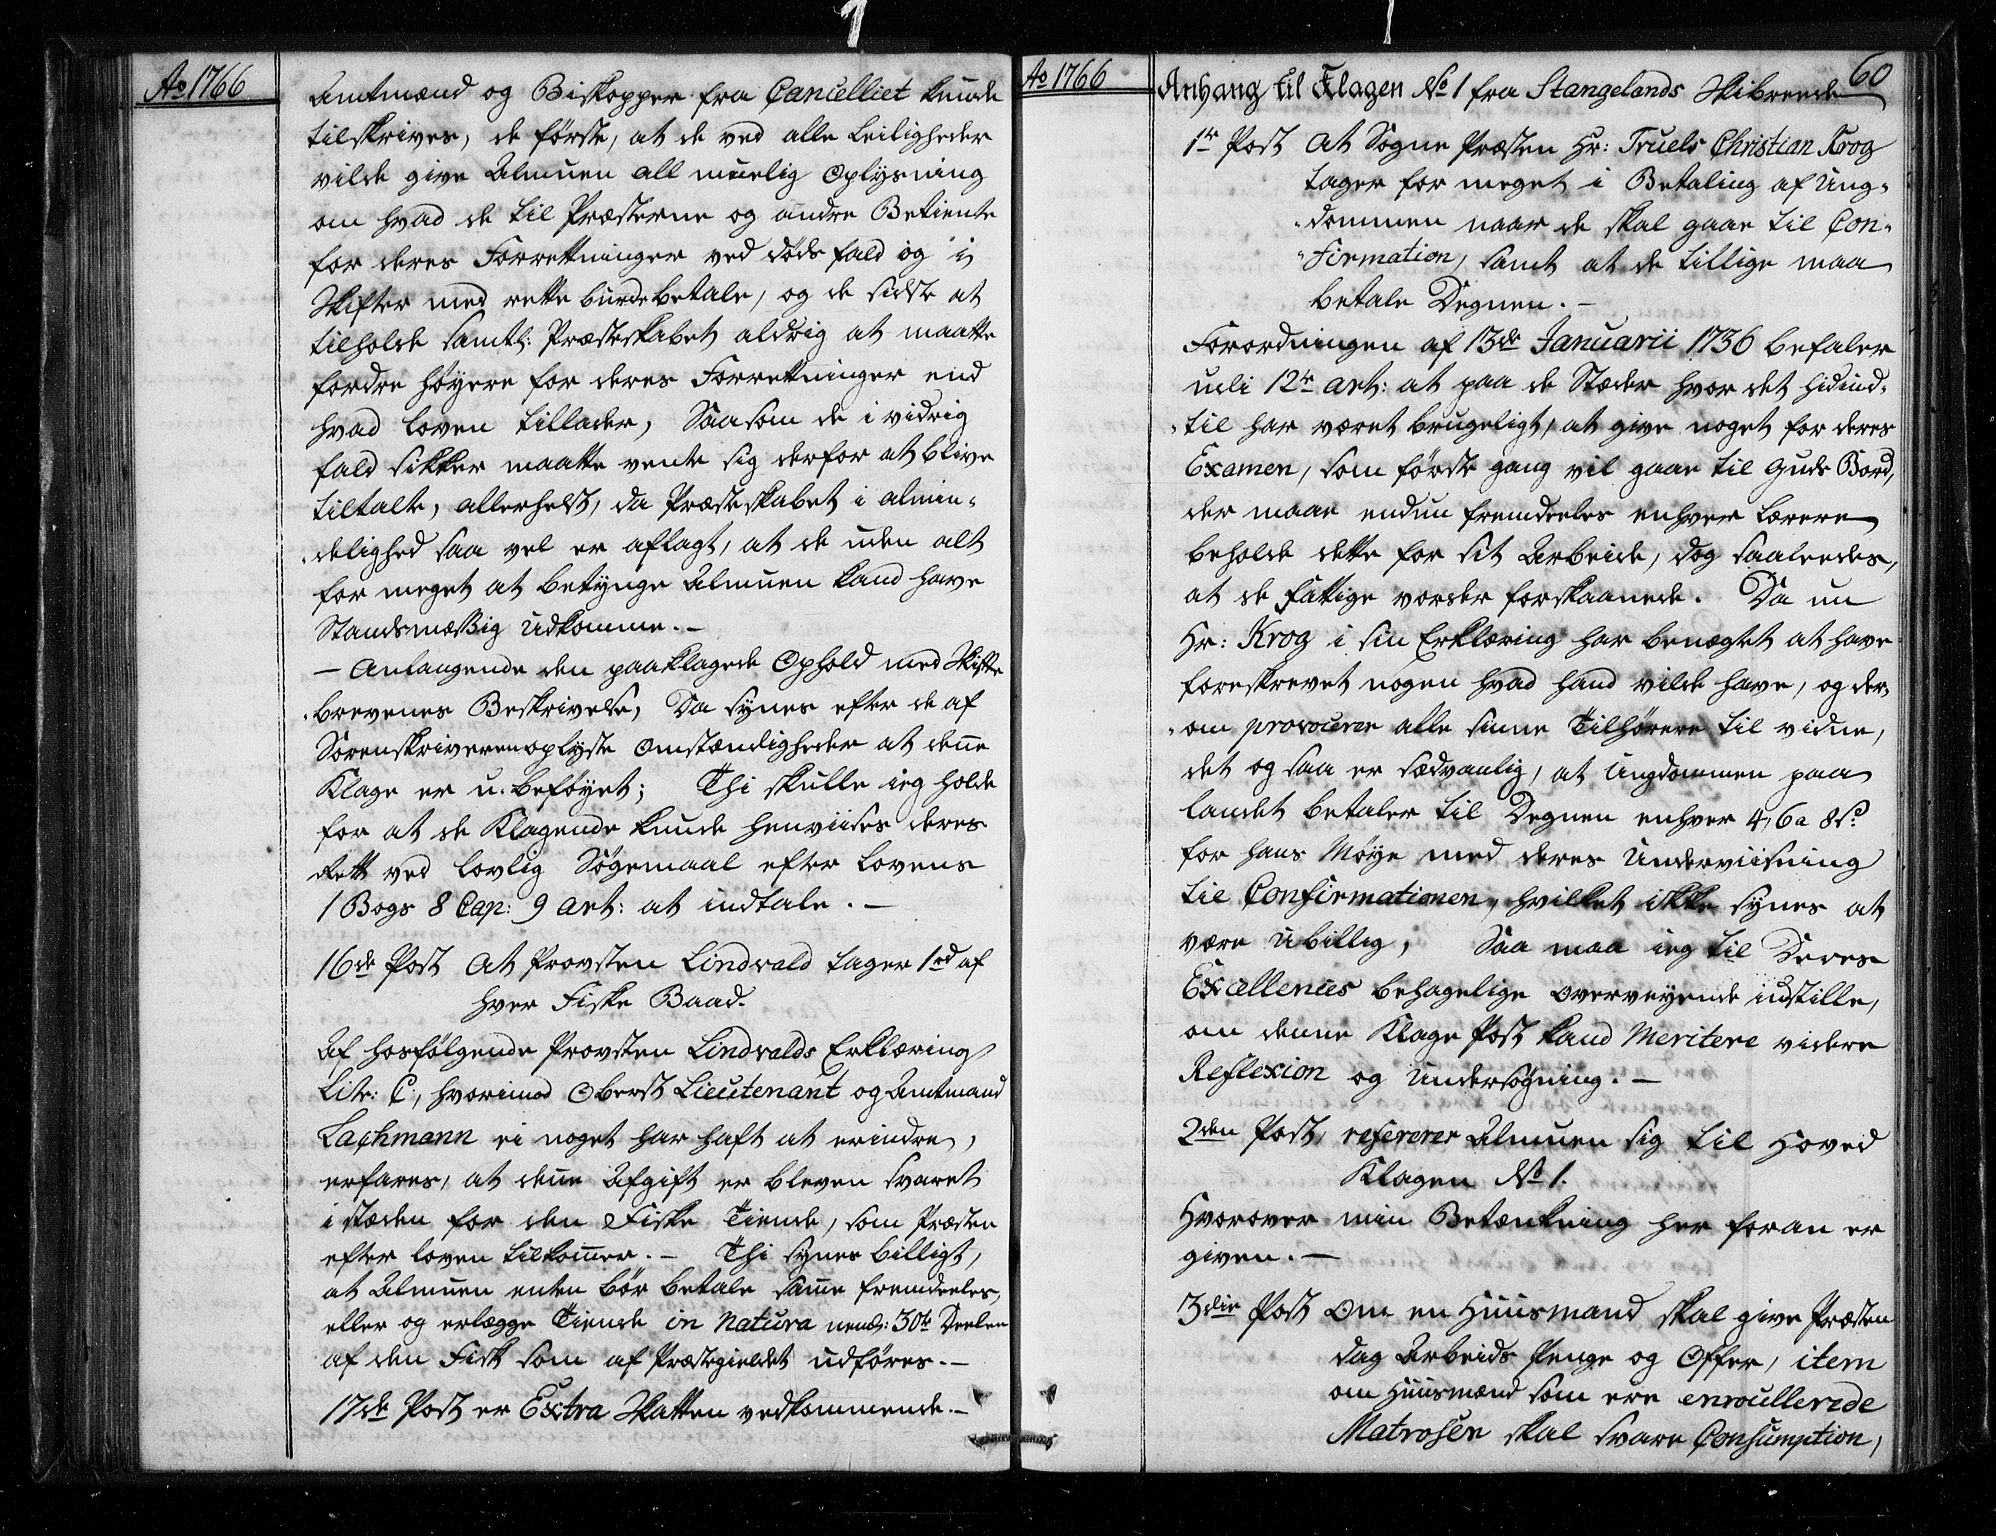 Ao 1766
Amtmænd og Biskopper fra Cancelliet kunde
tilskrives, de første, at de ved alle Leiligheder
vilde give Almuen all muelig Oplysning
om hvad de til Præsterne og andre Betiente
for deres Forrettninger ved dødsfald og i
Skifter med rette burde betale, og de sidste at
tilholde samtl: Præsteskabet aldrig at maatte
fordre høyere for deres Forrettninger end
hvad Loven tillader, Saasom de i vidrig
fald sikker maatte vente sig derfor at blive
tiltalte, allerhelst, da Præsteskabet i almin-
delighed saa vel er aflagt, at de uden alt
for meget at betynge Almuen kand have
Standsmæssig Udkomme.-
- Anlangende den paaklagede Ophold med Skifte
brevenes Beskrivelse, Da synes efter de af
Sorenskriveren oplyste Omstændigheder at denne
Klage er u-beføyet; Thi skulle ieg holde
for at de Klagende kunde henviises deres
Rett ved lovlig Søgemaal efter Lovens
1 Bogs 8 Cap: 9 art: at indtale.-
16de Post At Provsten Lindvald tager 1 od af
hver Fiske Baad.
Af hosfølgende Provsten Lindvalds Erklæring
Litr: C:, hvorimod Oberst Lieutenant og Amtmand
Lachmann ei noget har haft at erindre,
erfares, at denne Afgift er bleven svaret
i stæden for den Fiske Tiende, som Præsten
efter Loven tilkommer.- Thi synes billigt,
at Almuen enten bør betale samme fremdeeles,
eller og erlægge Tiende in Natura nemlig: 30te Deelen
af den Fisk som af Præstegieldet udføres.-
17de Post er Extra Skatten vedkommende.-
Ao 1766
60
Anhang til Klagen No 1 fra Stangelands Skibreede
1te Post At Sogne Præsten Hr: Truels Christian Krog
tager for meget i Betaling af Ung-
dommen naar de skal gaae til Con-
firmation, samt at de tillige maa
betale Degnen.-
Forordningen af 13de Januarii 1736 befaler
udi 12te art: at paa de Stæder hvor det hidind-
til har været brugeligt, at give noget for deres
Examen, som første gang vil gaae til Guds Bord,
der maae endnu fremdeeles enhver Lærere
beholde dette for sit Arbeide, dog saaledes,
at de fattige vorder forskaanede. Da nu
Hr: Krog i sin Erklæring har benægtet at have
foreskrevet nogen hvad hand vilde have, og der-
om provocerer alle sinne Tilhørere til vidne,
det og saa er sædvanlig, at Ungdommen paa
Landet betaler til Degnen enhver 4, 6 a 8 s.
for hans Møye med deres Underviisning
til Confirmationen, hvilket ikke synes at
være ubillig, Saa maa ieg til Deres
Excellences behagelige overveyende indstille,
om denne Klage Post kand Meritere videre
Reflexion og Undersøgning.-
2den Post, refererer Almuen sig til Hoved
Klagen No 1.
Hvorover min Betænkning her foran er
given.-
3die Post Om en Huusmand skal give Præsten
dag Arbeids Penge og Offer, item
om Huusmænd som ere enroullerede
Matroser skal svare Consumption,